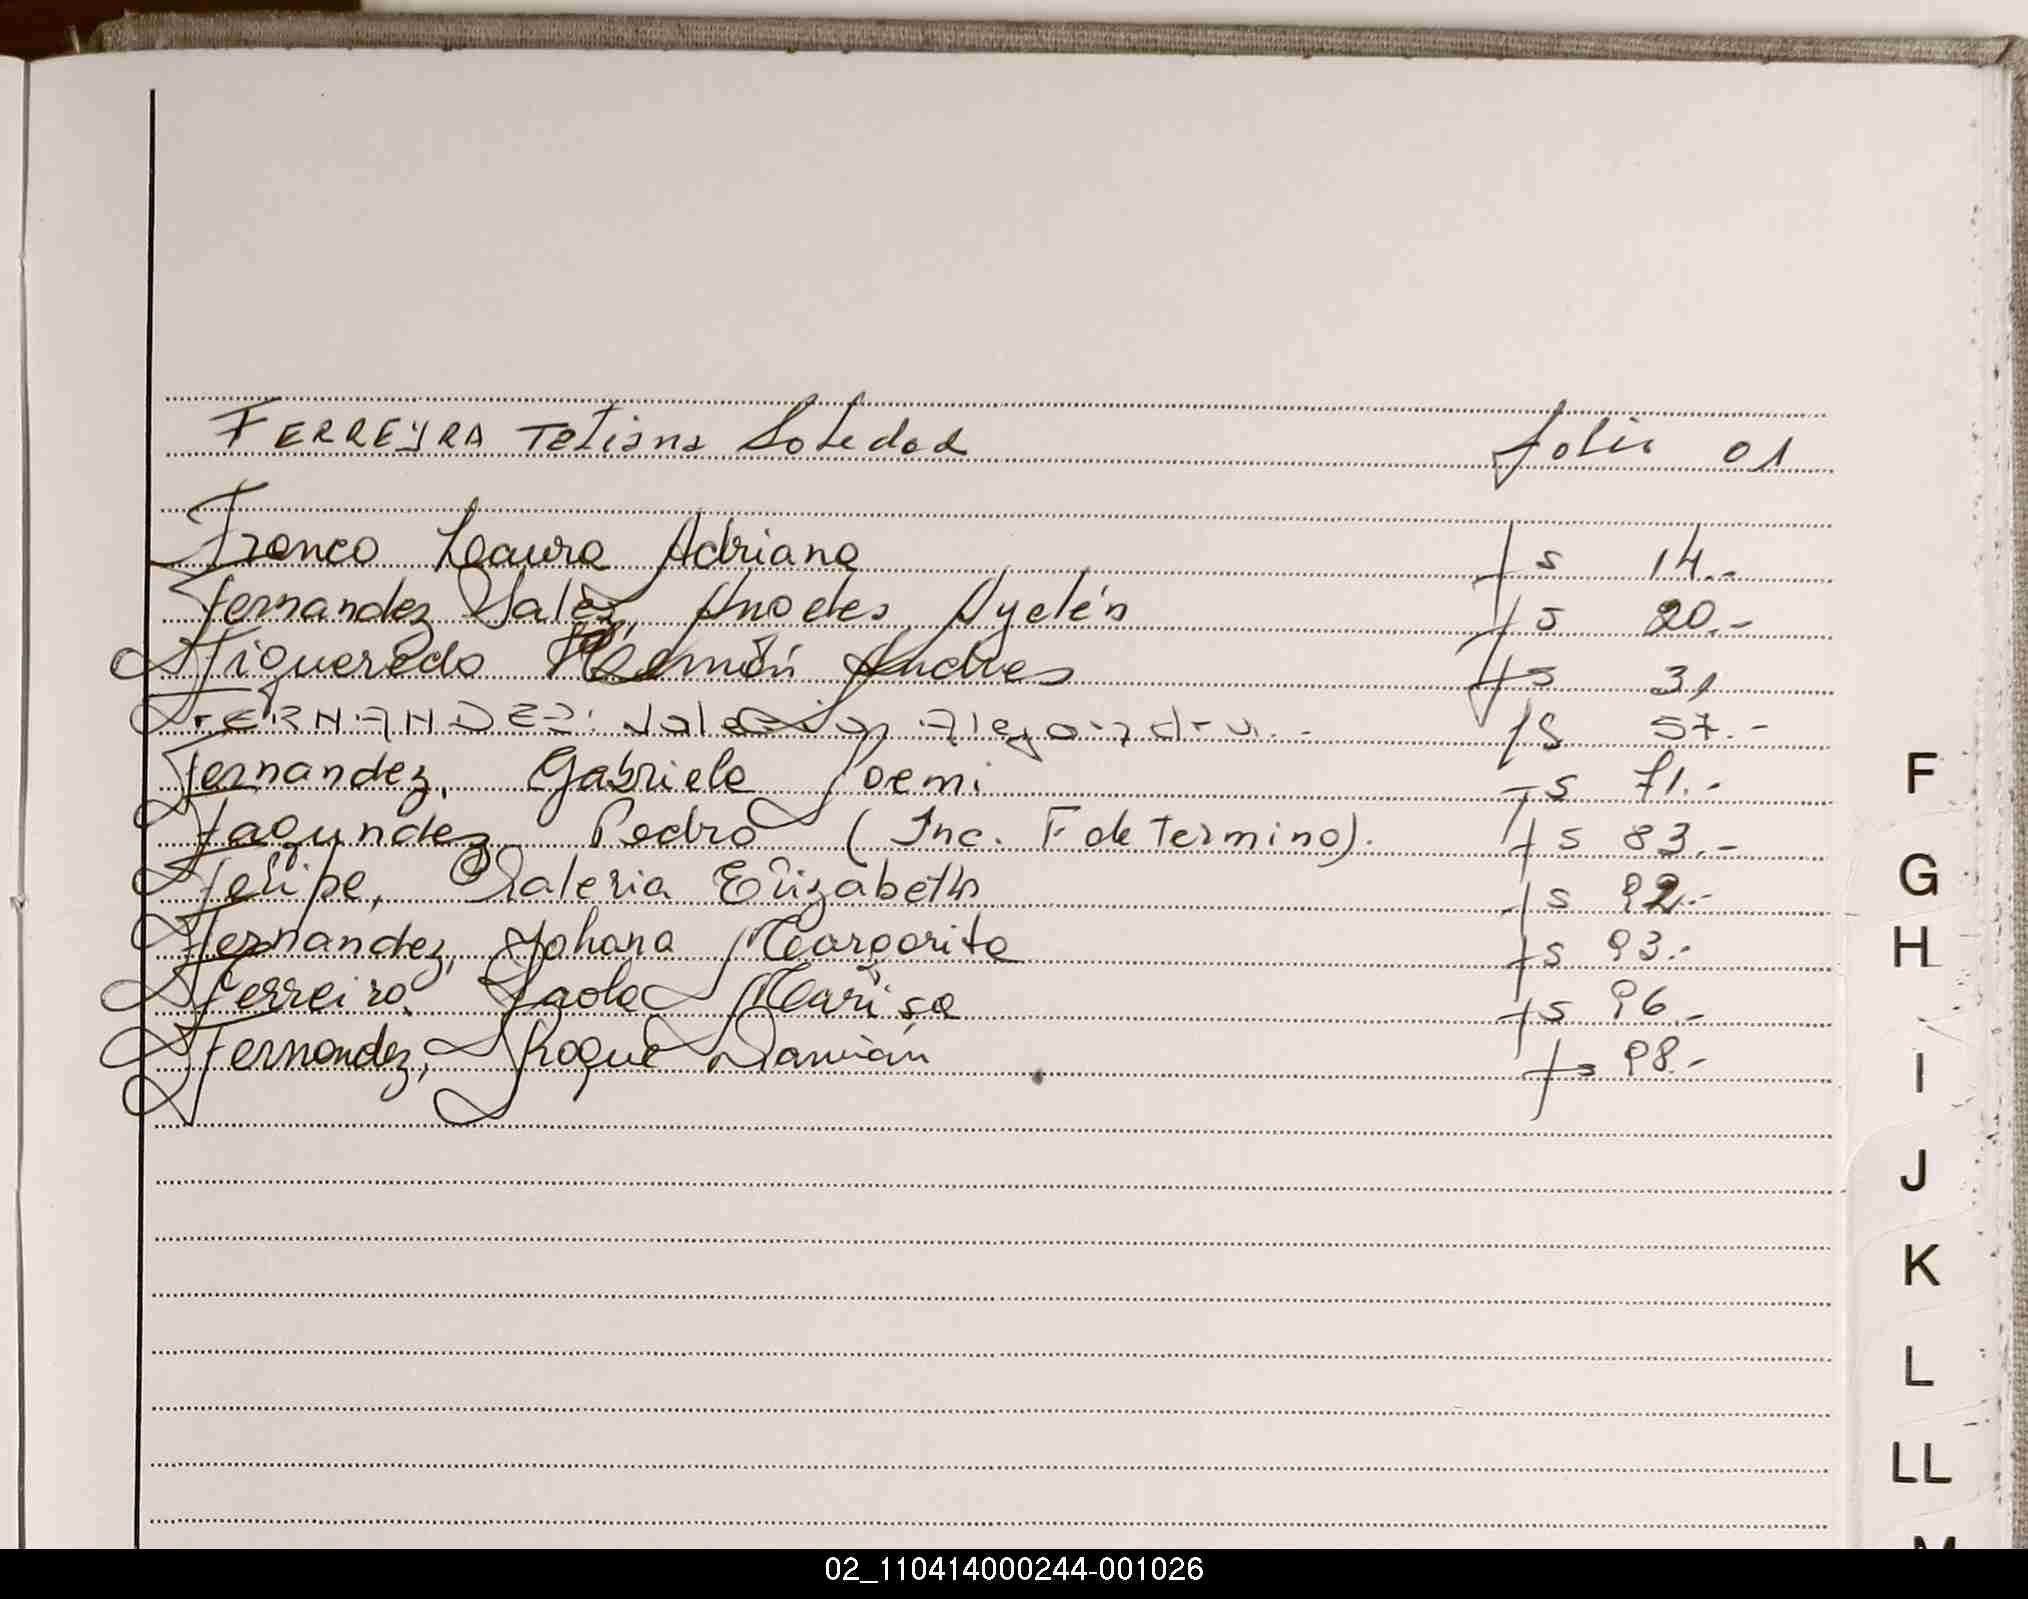 FERREYRA Tatiana Soledad folio 01
Franco Laura Adriana fs 14.-
Fernandez Ayelén fs 20.-
Figueredo Ramón Andres fs 31
FERNANDEZ: Alejandra.- fs 57.-
Fernandez, Gabriela Noemi fs 71.-
Fagundez Pedro (Inc. F de Termino). fs 83.-
Felipe, Valeria Elizabeth fs 92.-
Fernandez, Yohana Margarita fs 93.-
Ferreiro, Paola Marisa fs 96.-
Fernandez, Roque Damián fs 98.-
F
G
H
I
J
K
L
LL
M
02_110414000244-001026